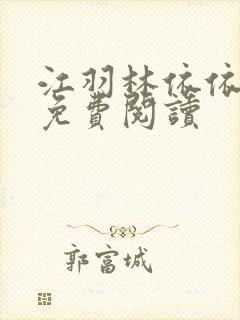 江羽林依依
免費閱讀
郭富城